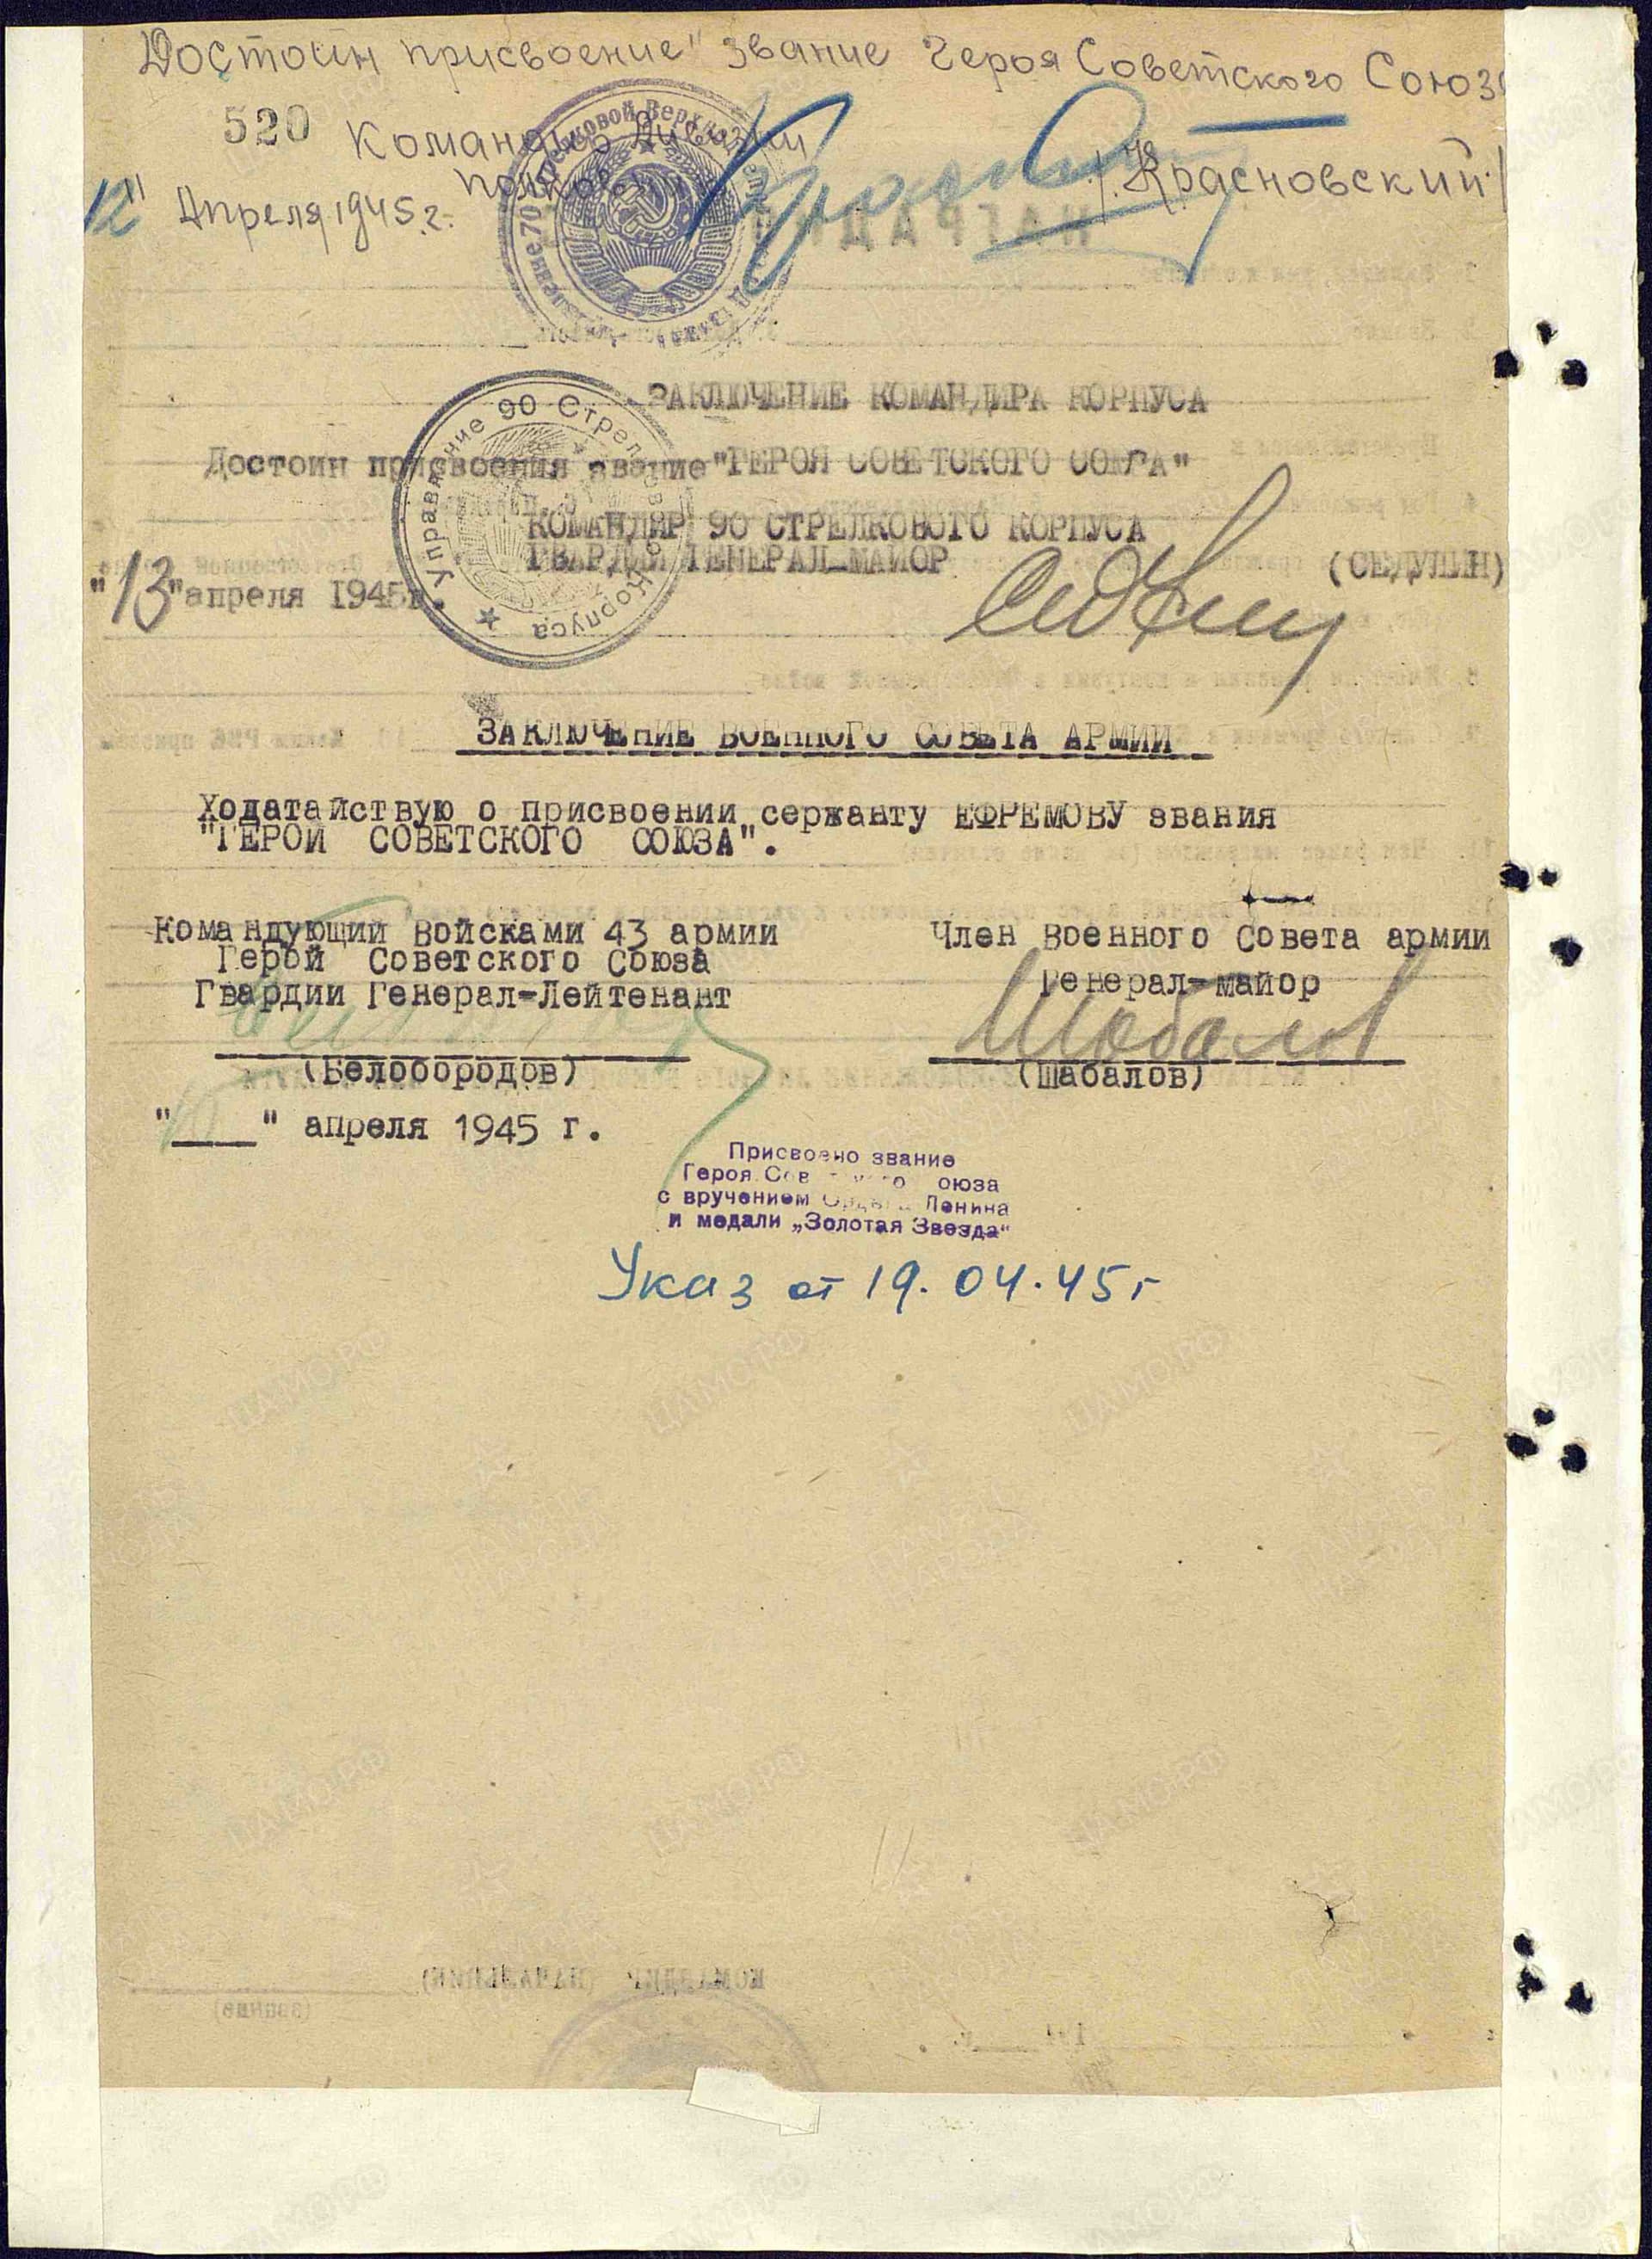 Достоин присвоение" звание Героя Советского Союза
520 Командир Дивизии
Полковник /Красновский/
12" Апреля 1945 г.
ЗАКЛЮЧЕНИЕ КОМАНДИРА КОРПУСА
Достоин присвоения звание "ГЕРОЯ СОВЕТСКОГО СОЮЗА"
КОМАНДИР 90 СТРЕЛКОВОГО КОРПУСА
ГВАРДИИ ГЕНЕРАЛ-МАЙОР (СЕДУЛИН)
"13" апреля 1945г.
Управление 90 Стрелкового Корпуса
ЗАКЛЮЧЕНИЕ ВОЕННОГО СОВЕТА АРМИИ
Ходатайствую о присвоении сержанту ЕФРЕМОВУ звания
"ГЕРОЙ СОВЕТСКОГО СОЮЗА".
Командующий войсками 43 армии
Герой Советского Союза
Гвардии Генерал-Лейтенант
(Белобородов)
Член Военного Совета армии
Генерал-майор
Шабалов
(Шабалов)
"___" апреля 1945 г.
Присвоено звание
Героя Советского Союза
с вручением Ордена Ленина
и медали „Золотая Звезда"
Указ от 19.04.45г